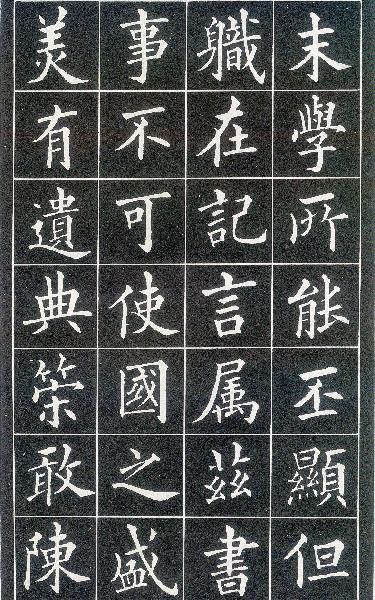 末學所能丕顯但
軄在記言属茲書
事不可使國之盛
美有遺典䇿敢陳